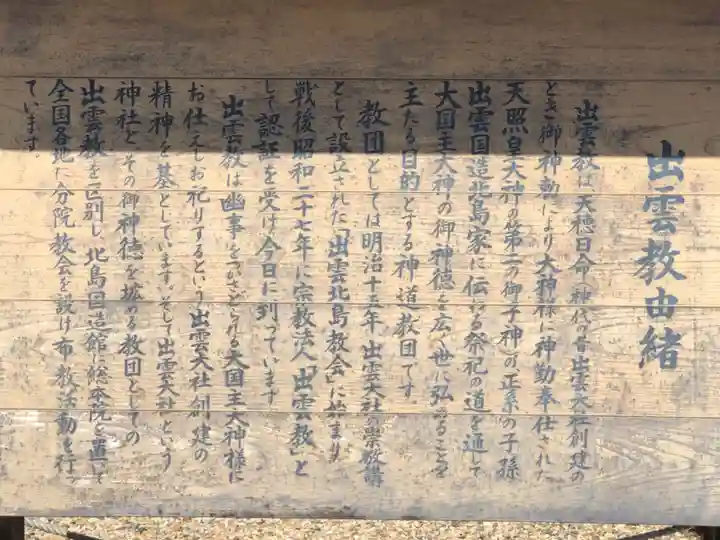 出雲教由緒
出雲教は、天穂日命(神代の昔出雲大社創建の
とき御神勅により大神様に神勤奉仕された
天照皇大神の第二の御子神)の正系の子孫
出雲国造北島家に伝わる祭祀の道を通して
大国主大神の御神徳を広く世に弘めることを
主たる目的とする神道教団です。
教団としては明治十五年、出雲大社の崇敬講
として設立された「出雲北島教会」に始まり
戦後昭和二十七年に宗教法人「出雲教」と
して認証を受け今日に到っています
出雲教は幽事をつかさどられる大国主大神様に
お仕えしお祀りするという出雲大社創建の
精神を基としています。そして出雲大社という
神社とその御神徳を拡める教団としての
出雲教を区別し、北島国造館に総本院を置いて
全国各地に分院教会を設け布教活動を行っ
ています。